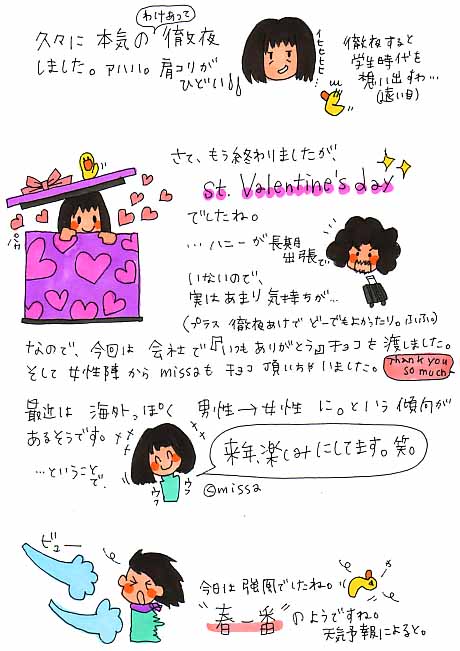 わけあって
久々に 本気の 徹夜
しました。アハハ。肩コリが
ひどい
イヒヒヒヒ…
徹夜すると
学生時代を
想い出すわ…
(遠い目)
さて、もう終わりましたが、
St. Valentine's day
でしたね。
パカ
…ハニーが 長期
出張で
いないので、
実はあまり 気持ちが…
(プラス 徹夜あけで どーでもよかったり。ふふふ)
なので、今回は 会社で『いつもありがとう』チョコを 渡しました。
そして 女性陣から missaも チョコ 頂いちゃいました。
Thank you
so much
最近は 海外っぽく 男性→女性 に。という 傾向が
あるそうです。
来年、楽しみにしてます。笑。
…ということ
で、
ウフ
ウフ
©missa
ビュー
今日は 強風でしたね。
"春一番"のようですね。
天気予報によると。